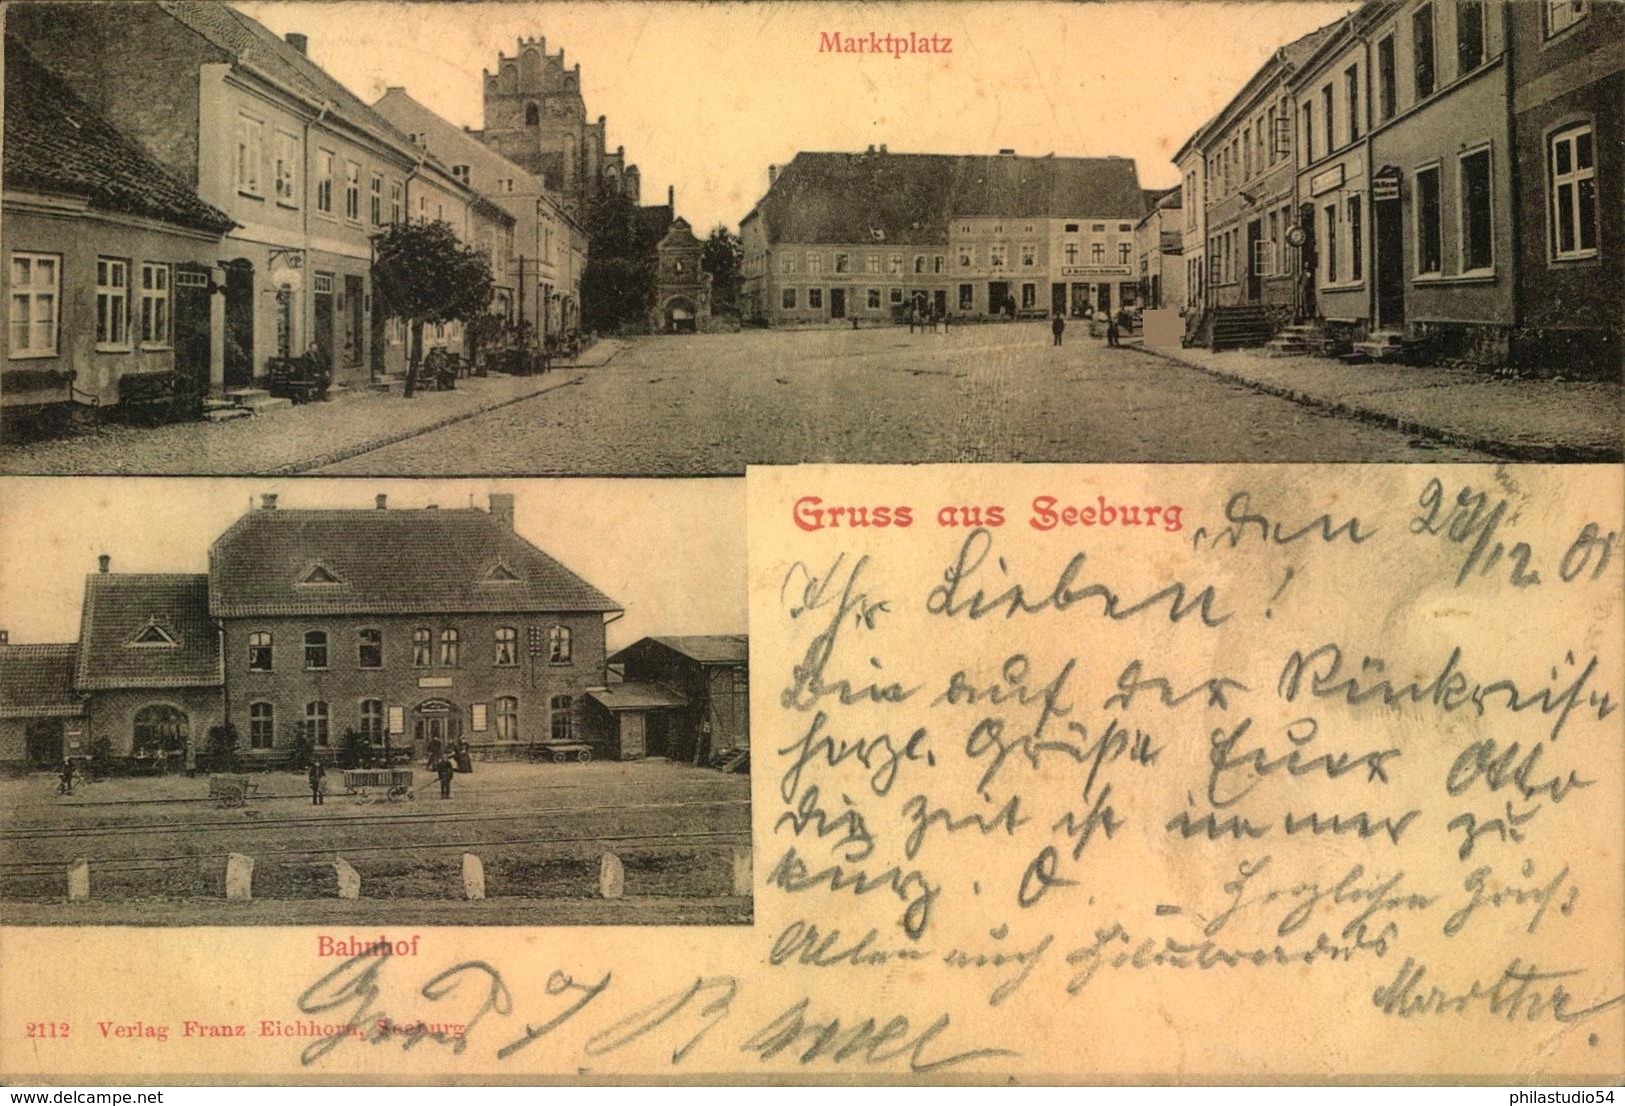 Marktplatz
Gruss aus Seeburg, den 27/12. 01
Ihr Lieben!
Bin auf der Rückreise
herzl. Grüße Euer Otto
die Zeit ist immer zu
kurz. O. — Herzlichen Gruß
Allen auch
Martha.
Bahnhof
Gruß
2112 Verlag Franz Eichhorn, Seeburg
delcampe.net
philastudio54